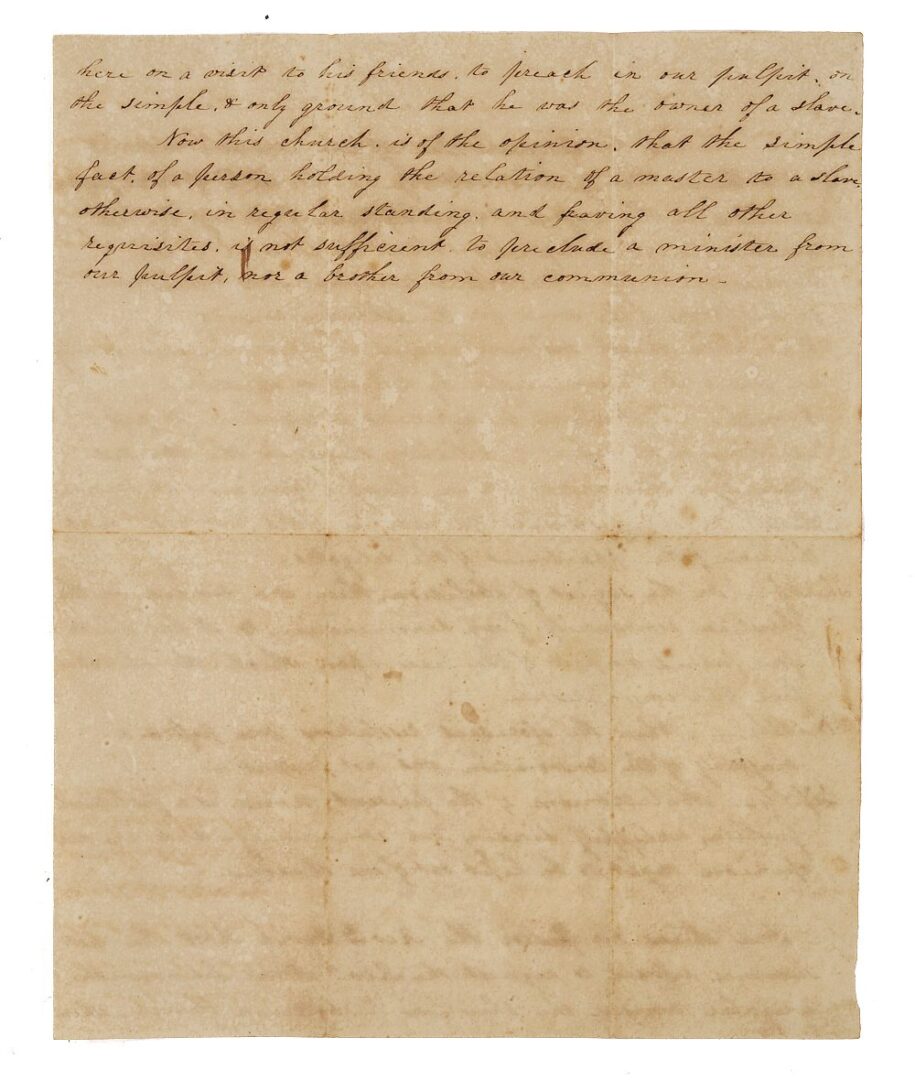 here on a visit to his friends. to preach in our pulpit. on
the simple, & only ground that he was the owner of a slave.
Now this church. is of the opinion. that the simple
fact. of a person holding the relation of a master to a slave,
otherwise, in regular standing, and having all other
requisites. is not sufficient. to preclude a minister from
our pulpit, nor a brother from our communion -